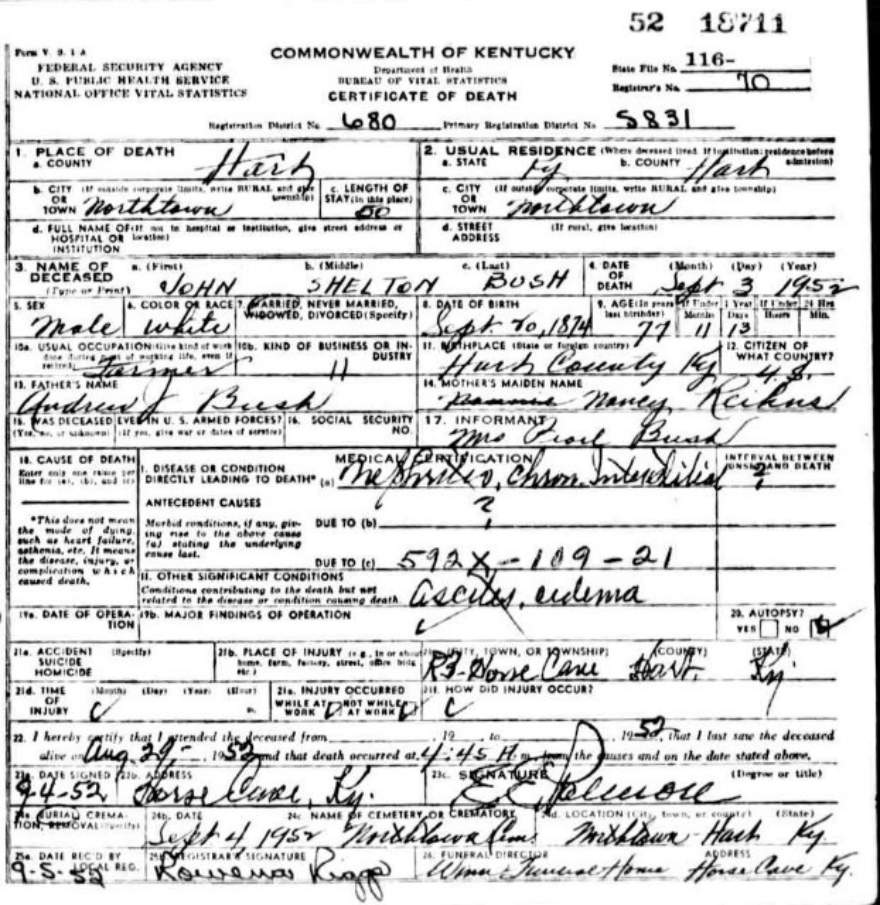 52 18711
Form V. S. 1 A
FEDERAL SECURITY AGENCY
U. S. PUBLIC HEALTH SERVICE
NATIONAL OFFICE VITAL STATISTICS
COMMONWEALTH OF KENTUCKY
Department of Health
BUREAU OF VITAL STATISTICS
CERTIFICATE OF DEATH
State File No. 116-
Registrar's No. 70
Registration District No. 680 Primary Registration District No. 5831
1. PLACE OF DEATH
a. COUNTY Hart
2. USUAL RESIDENCE (Where deceased lived. If institution: residence before admission)
a. STATE Ky b. COUNTY Hart
b. CITY (If outside corporate limits, write RURAL and give township)
OR TOWN Northtown
c. LENGTH OF STAY (in this place) 50
c. CITY (If outside corporate limits, write RURAL and give township)
OR TOWN Northtown
d. FULL NAME OF (If not in hospital or institution, give street address or location)
HOSPITAL OR INSTITUTION
d. STREET ADDRESS (If rural, give location)
3. NAME OF DECEASED (Type or Print)
a. (First) JOHN b. (Middle) SHELTON c. (Last) BUSH
4. DATE OF DEATH (Month) (Day) (Year) Sept 3 1952
5. SEX Male
6. COLOR OR RACE white
7. MARRIED, NEVER MARRIED, WIDOWED, DIVORCED (Specify)
8. DATE OF BIRTH Sept. 20, 1874
9. AGE (In years last birthday) 77 If Under 1 Year Months 11 Days 13 If Under 24 Hrs Hours Min.
10a. USUAL OCCUPATION (Give kind of work done during most of working life, even if retired) Farmer
10b. KIND OF BUSINESS OR INDUSTRY 11
11. BIRTHPLACE (State or foreign country) Hart County Ky
12. CITIZEN OF WHAT COUNTRY? U.S.
13. FATHER'S NAME
Andrew J Bush
14. MOTHER'S MAIDEN NAME
Nancy
15. WAS DECEASED EVER IN U. S. ARMED FORCES?
(Yes, no, or unknown) (If yes, give war or dates of service)
16. SOCIAL SECURITY NO.
17. INFORMANT
Mrs Pearl Bush
18. CAUSE OF DEATH
Enter only one cause per line for (a), (b), and (c)
MEDICAL CERTIFICATION
I. DISEASE OR CONDITION DIRECTLY LEADING TO DEATH* (a) Nephritis, Chron. Interstitial
INTERVAL BETWEEN ONSET AND DEATH ?
*This does not mean the mode of dying, such as heart failure, asthenia, etc. It means the disease, injury, or complication which caused death.
ANTECEDENT CAUSES
Morbid conditions, if any, giving rise to the above cause (a) stating the underlying cause last.
DUE TO (b) ?
DUE TO (c) 592X-109-21
II. OTHER SIGNIFICANT CONDITIONS
Conditions contributing to the death but not related to the disease or condition causing death. ascites, edema
19a. DATE OF OPERATION
19b. MAJOR FINDINGS OF OPERATION
20. AUTOPSY?
YES NO
21a. ACCIDENT SUICIDE HOMICIDE (Specify)
21b. PLACE OF INJURY (e.g., in or about home, farm, factory, street, office bldg. etc.)
21c. (CITY, TOWN, OR TOWNSHIP) (COUNTY) (STATE)
R3-Horse Cave Hart. Ky.
21d. TIME OF INJURY (Month) (Day) (Year) (Hour) m.
21e. INJURY OCCURRED
WHILE AT WORK NOT WHILE AT WORK
21f. HOW DID INJURY OCCUR?
22. I hereby certify that I attended the deceased from , 19 to , 1952, that I last saw the deceased
alive on Aug. 29, 1952 and that death occurred at 4:45 m. from the causes and on the date stated above.
23a. DATE SIGNED 9-4-52
23b. ADDRESS Horse Cave, Ky.
23c. SIGNATURE (Degree or title)
24a. BURIAL, CREMATION, REMOVAL (Specify)
24b. DATE Sept 4, 1952
24c. NAME OF CEMETERY OR CREMATORY Northtown Cem.
24d. LOCATION (City, town, or county) (State) Northtown Hart Ky
25a. DATE REC'D BY LOCAL REG. 9-5-52
25b. REGISTRAR'S SIGNATURE Rowena Riggs
26. FUNERAL DIRECTOR ADDRESS
Winn Funeral Home Horse Cave Ky.